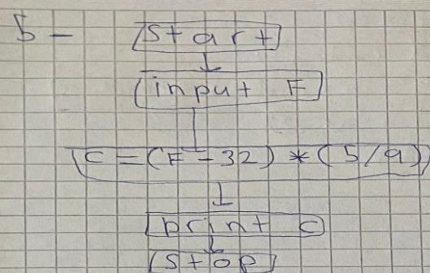 5 - Start
input F
C = (F - 32) * (5/9)
print C
Stop